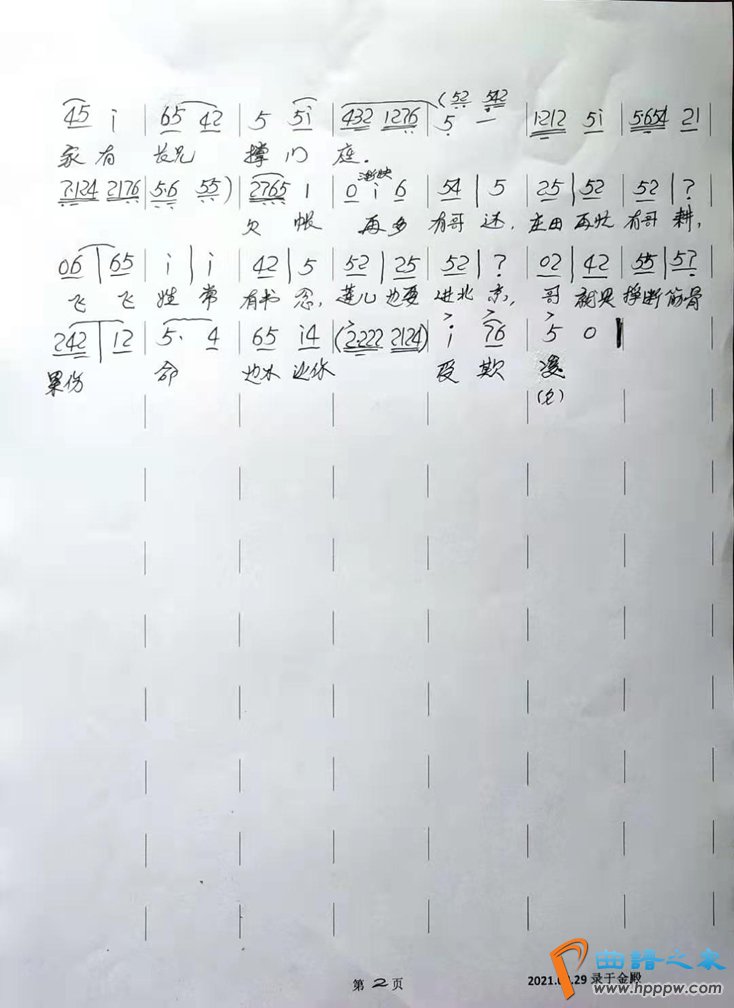 45 i | 65 42 | 5 5i | 432 1276 | 5 — (52 542 | 1212 5i | 5·654 21
家有 长兄 撑门庭.
7·124 2176 | 5·6 55) | 2765 1 | 0 i 6 | 54 | 5 | 25 | 52 | 52 | ?
渐快
欠帐 再多有哥还, 庄田再忙有哥耕,
06 | 65 | i | i | 42 | 5 | 52 | 25 | 52 | ? | 02 | 42 | 55 | 5?
飞飞 有书念, 也要进北京, 哥 挣断筋骨
242 | 12 | 5· 4 | 65 i4 | (2·222 2124) | i 76 | 5 0
累伤 命 也不 让你 受欺凌
第 2 页
录于金殿
曲谱之家
www.hppw.com